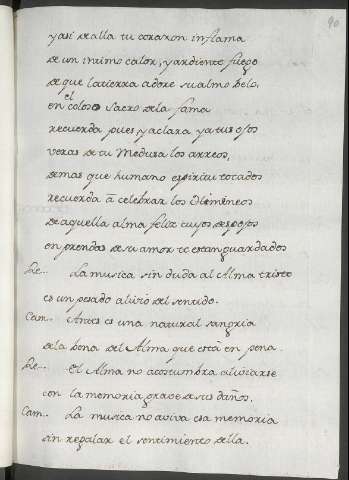 90
y asi de alla tu corazon inflama
de un intimo calor, y ardiente fuego
de que la tierra adore su almo Delo,
en el coloso sacro de la fama
recuerda pues, y aclara ya tus ojos
veras de tu Medusa los arreos,
de mas que humano espiritu tocados
recuerda â celebrar los Himeneos
de aquella alma feliz cuyos despojos
en prendas de su amor te estan guardados
De... La musica sin duda al Alma triste
es un pesado alivio del sentido.
Cam... Antes es una natural sangria
de la bena del Alma que està en pena
De... El Alma no acostumbra aliviarse
con la memoria grave de sus daños.
Cam... La musica no aviva esa memoria
sin regalar el sentimiento della.